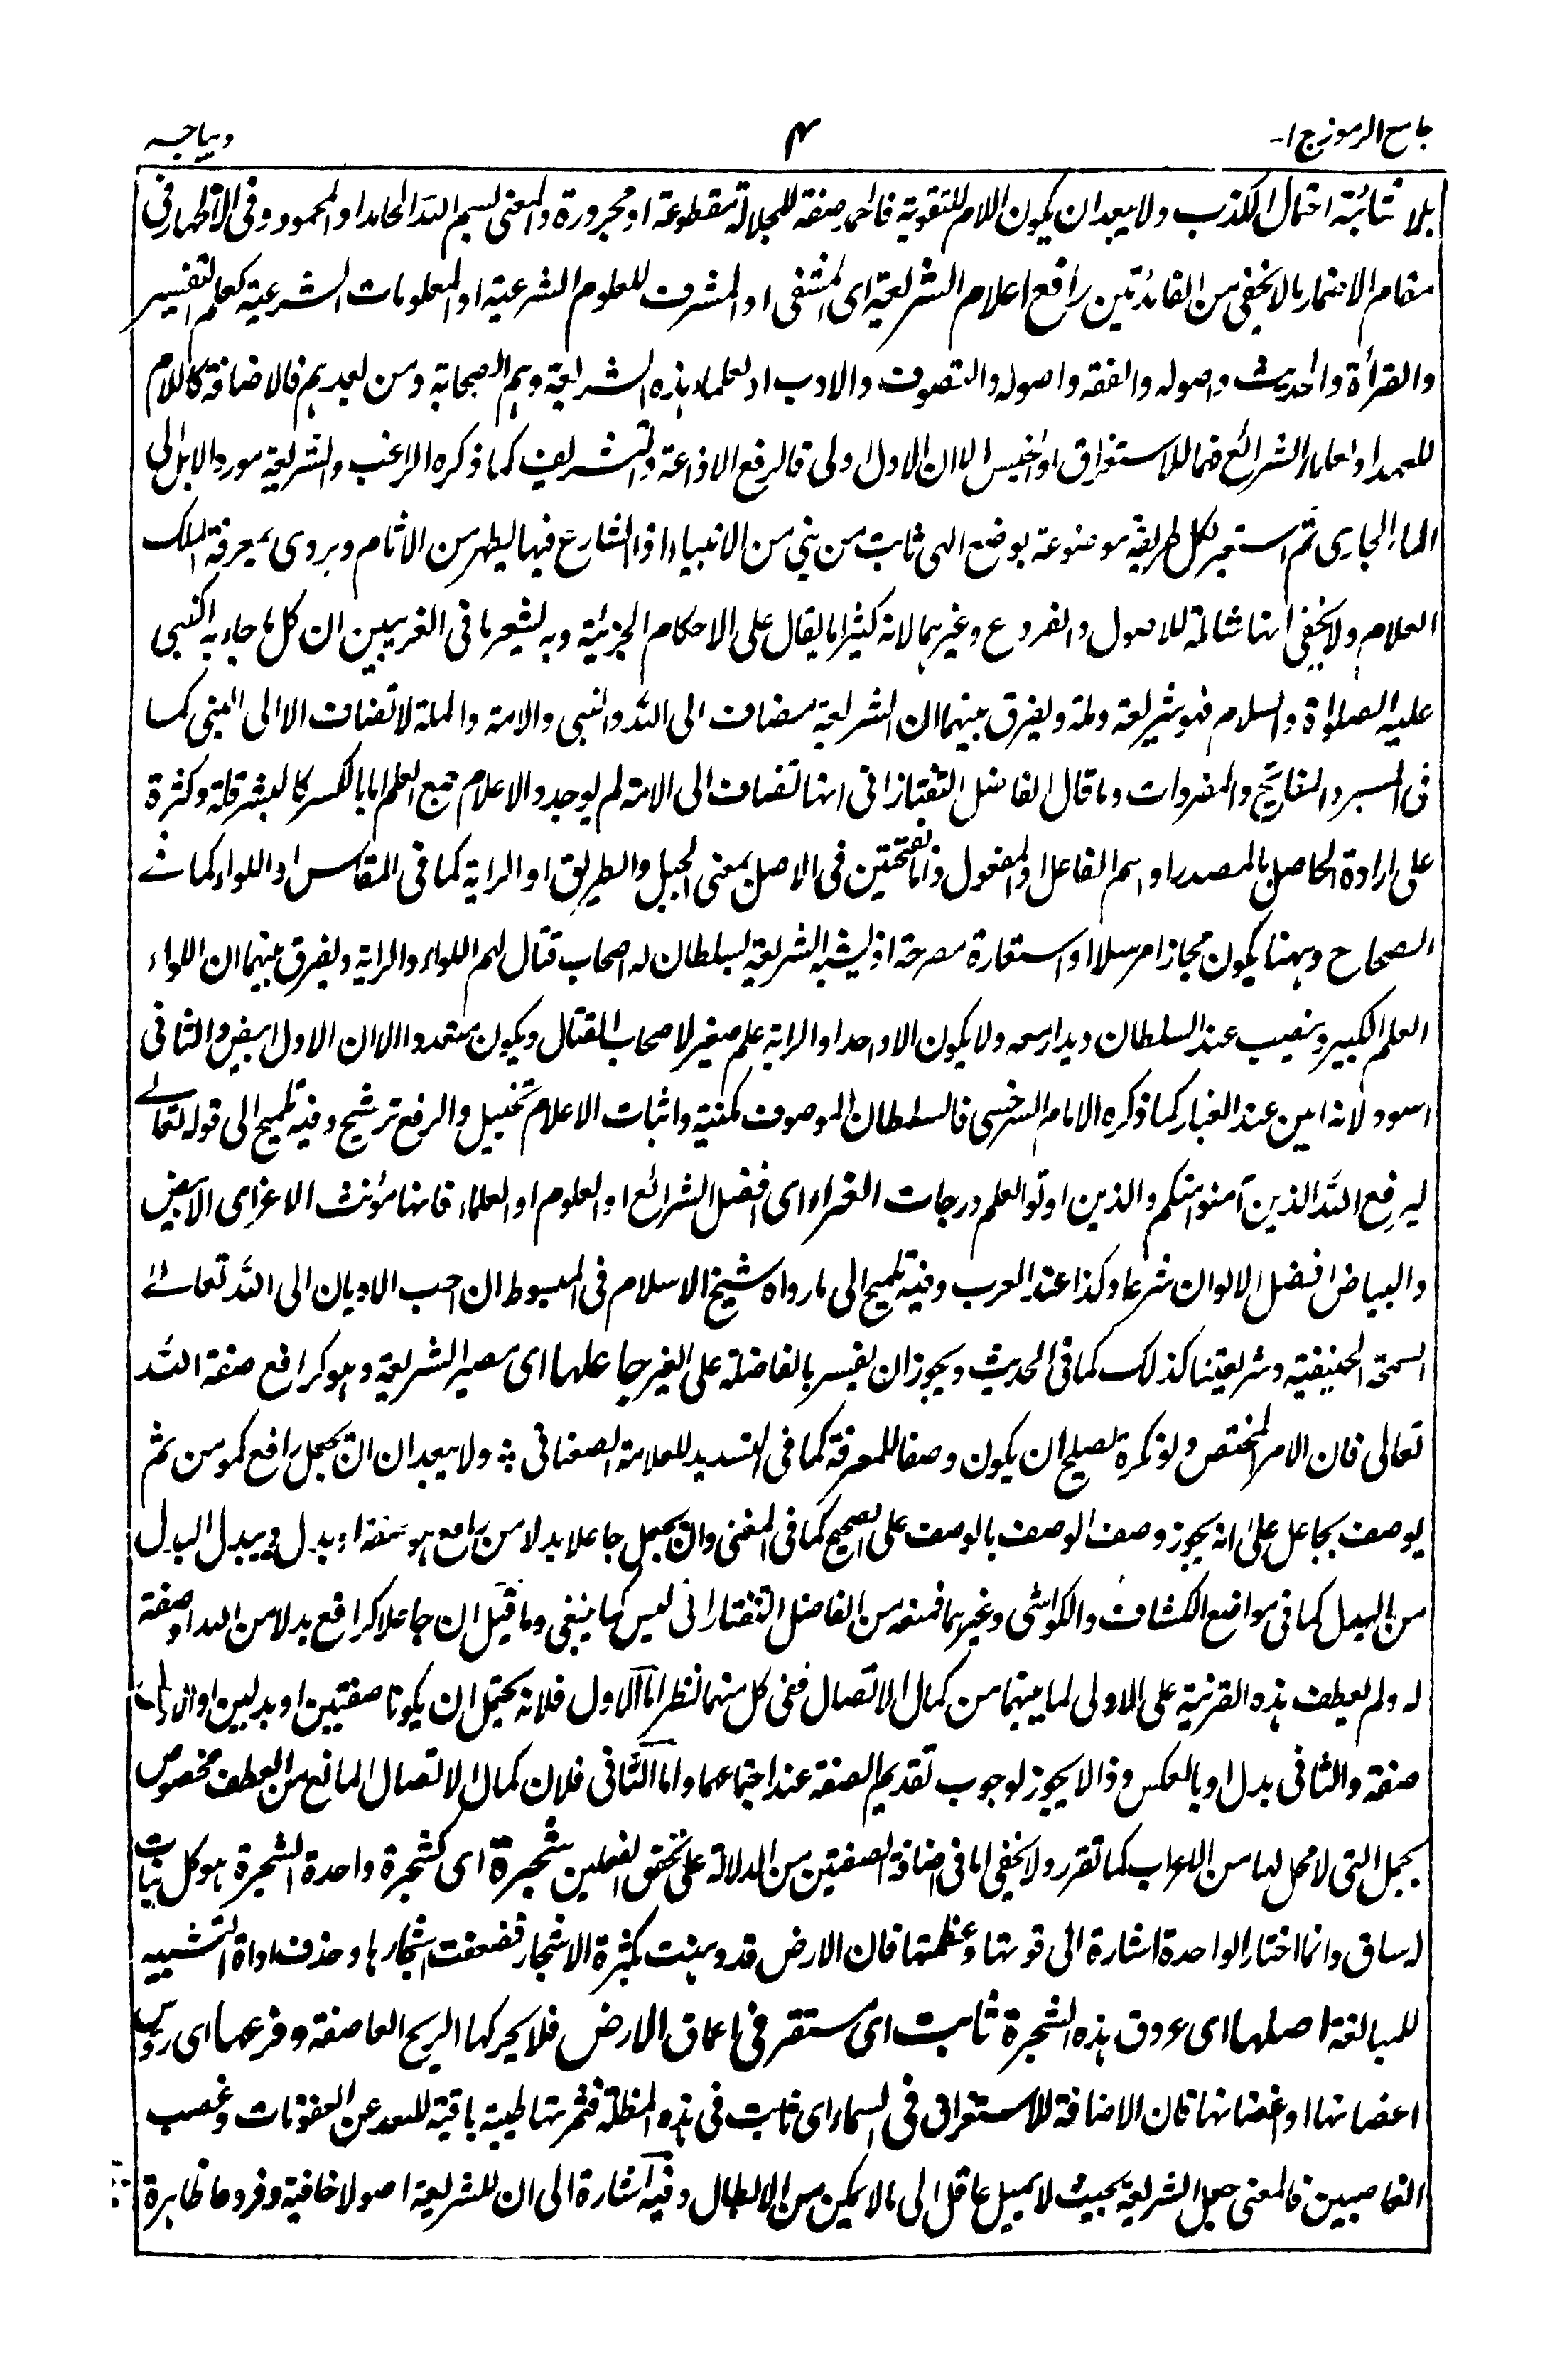 جامع الرموز ج ۱-
۴
دیباچہ
بلا شائبة احتمال الكذب ولا يبعد ان يكون اللام للتقوية فالحمد صفة للجلالة مقطوعة او مجرورة والمعنى بسم الله الحامد او المحمود وفى الاظهار فى
مقام الاضمار ما لا يخفى من الفائدتين رافع اعلام الشريعة اى المنشى او المشرف للعلوم الشرعية او المعلومات الشرعية كعلم التفسير
والقرأة والحديث واصوله والفقه واصوله والتصوف والادب او لعلماء هذه الشريعة وهم الصحابة ومن بعدهم فالاضافة كاللام
للعهد او لعلماء الشرائع فهما للاستغراق او الجنس الا ان الاول اولى فالرفع الاذاعة والتشريف كما ذكره الراغب والشريعة مورد الابل الى
الماء الجارى ثم استعير لكل طريقة موضوعة بوضع الهى ثابت من نبى من الانبياء اذ الشارع فيها ليطهر من الاثام ويروى بمعرفة الملك
العلام ولا يخفى انها شاملة للاصول والفروع وغيرهما لانه كثيرا ما يقال على الاحكام الجزئية وبه يشعر ما فى الغريبين ان كل ما جاء به النبى
عليه الصلوٰة والسلام فهو شريعة وملة ويفرق بينهما ان الشريعة تضاف الى الله والنبى والامة والملة لا تضاف الا الى النبى كما
فى السير والمفاتيح والمفردات وما قال الفاضل التفتازانى انها تضاف الى الامة لم يوجد والاعلام جمع العلم اما بالكسر كالبشر قلة وكثرة
على ارادة الحاصل بالمصدر او اسم الفاعل او المفعول واما بفتحتين فى الاصل بمعنى الجبل والطريق او الراية كما فى المقائس او اللواء كما فے
الصحاح وههنا يكون مجازا مرسلا او استعارة مصرحة اذ يشبه الشريعة بسلطان له اصحاب قتال لهم اللواء والراية ويفرق بينهما ان اللواء
العلم الكبير وينصب عند السلطان ويدار معه ولا يكون الا واحدا والراية علم صغير لاصحاب القتال ويكون متعددا الا ان الاول ابيض والثانى
اسود لانه ابين عند الغبار كما ذكره الامام السرخسى فالسلطان الموصوف مكنية واثبات الاعلام تخييل والرفع ترشيح وفيه تلميح الى قوله تعالے
ليرفع الله الذين آمنوا منكم والذين اوتوا العلم درجات الغراء اى افضل الشرائع او العلوم او العلماء فانها مؤنث الاغر اى الابيض
والبياض افضل الالوان شرعا وكذا عند العرب وفيه تلميح الى ما رواه شيخ الاسلام فى المبسوط ان احب الاديان الى الله تعالےٰ
السمحة الحنيفية وشريعتنا كذلك كما فى الحديث ويجوز ان يفسر بالفاضلة على الغير جاعلها اى مصير الشريعة وهو كرافع صفة الله
تعالى فان الامر المختص ولو نكرة يصلح ان يكون وصفا للمعرفة كما فى التسديد للعلامة الصغناقى ولا يبعد ان ان يجعل رافع كمومن ثم
يوصف بجاعل على انه يجوز وصف الوصف بالوصف على الصحيح كما فى المغنى وان يجعل جاعلا بدلا من رافع هو صفة او بدل ويبدل البدل
من البدل كما فى مواضع الكشاف والكواشى وغيرهما فمنعه من الفاضل التفتازانى ليس كما ينبغى وما قيل ان جاعلا كرافع بدلا من الله او صفة
له ولم يعطف هذه القرينة على الاولى لما بينهما من كمال الاتصال ففى كل منهما نظر اما الاول فلانه يحتمل ان يكونا صفتين او بدلين او الاول
صفة والثانى بدل او بالعكس وذا لا يجوز لوجوب تقديم الصفة عند اجتماعهما واما الثانى فلان كمال الاتصال المانع من العطف مخصوص
بجمل التى لا محل لها من الاعراب كما تقرر ولا يخفى اما فى اضافة الصفتين من الدلالة على تحقق الفعلين شجرة اى كشجرة واحدة الشجرة هو كل نبات
له ساق وانما اختار الواحدة اشارة الى قوتها وعظمتها فان الارض قد وهنت بكثرة الاشجار فضعفت اشجارها وحذف اداة التشبيه
للمبالغة اصلها اى عروق هذه الشجرة ثابت اى مستقر فى اعماق الارض فلا يحركها الريح العاصفة وفرعها اى رؤس
اعضانها او اغصانها فان الاضافة للاستغراق فى السماء اى ثابت فى هذه المظلة فثمرتها طيبة باقية للبعد عن العفونات وغصب
الغاصبين فالمعنى جعل الشريعة بحيث لا يميل عاقل الى ما لا يمكن من الابطال وفيه اشارة الى ان للشريعة اصولا خافية وفروعا ظاهرة